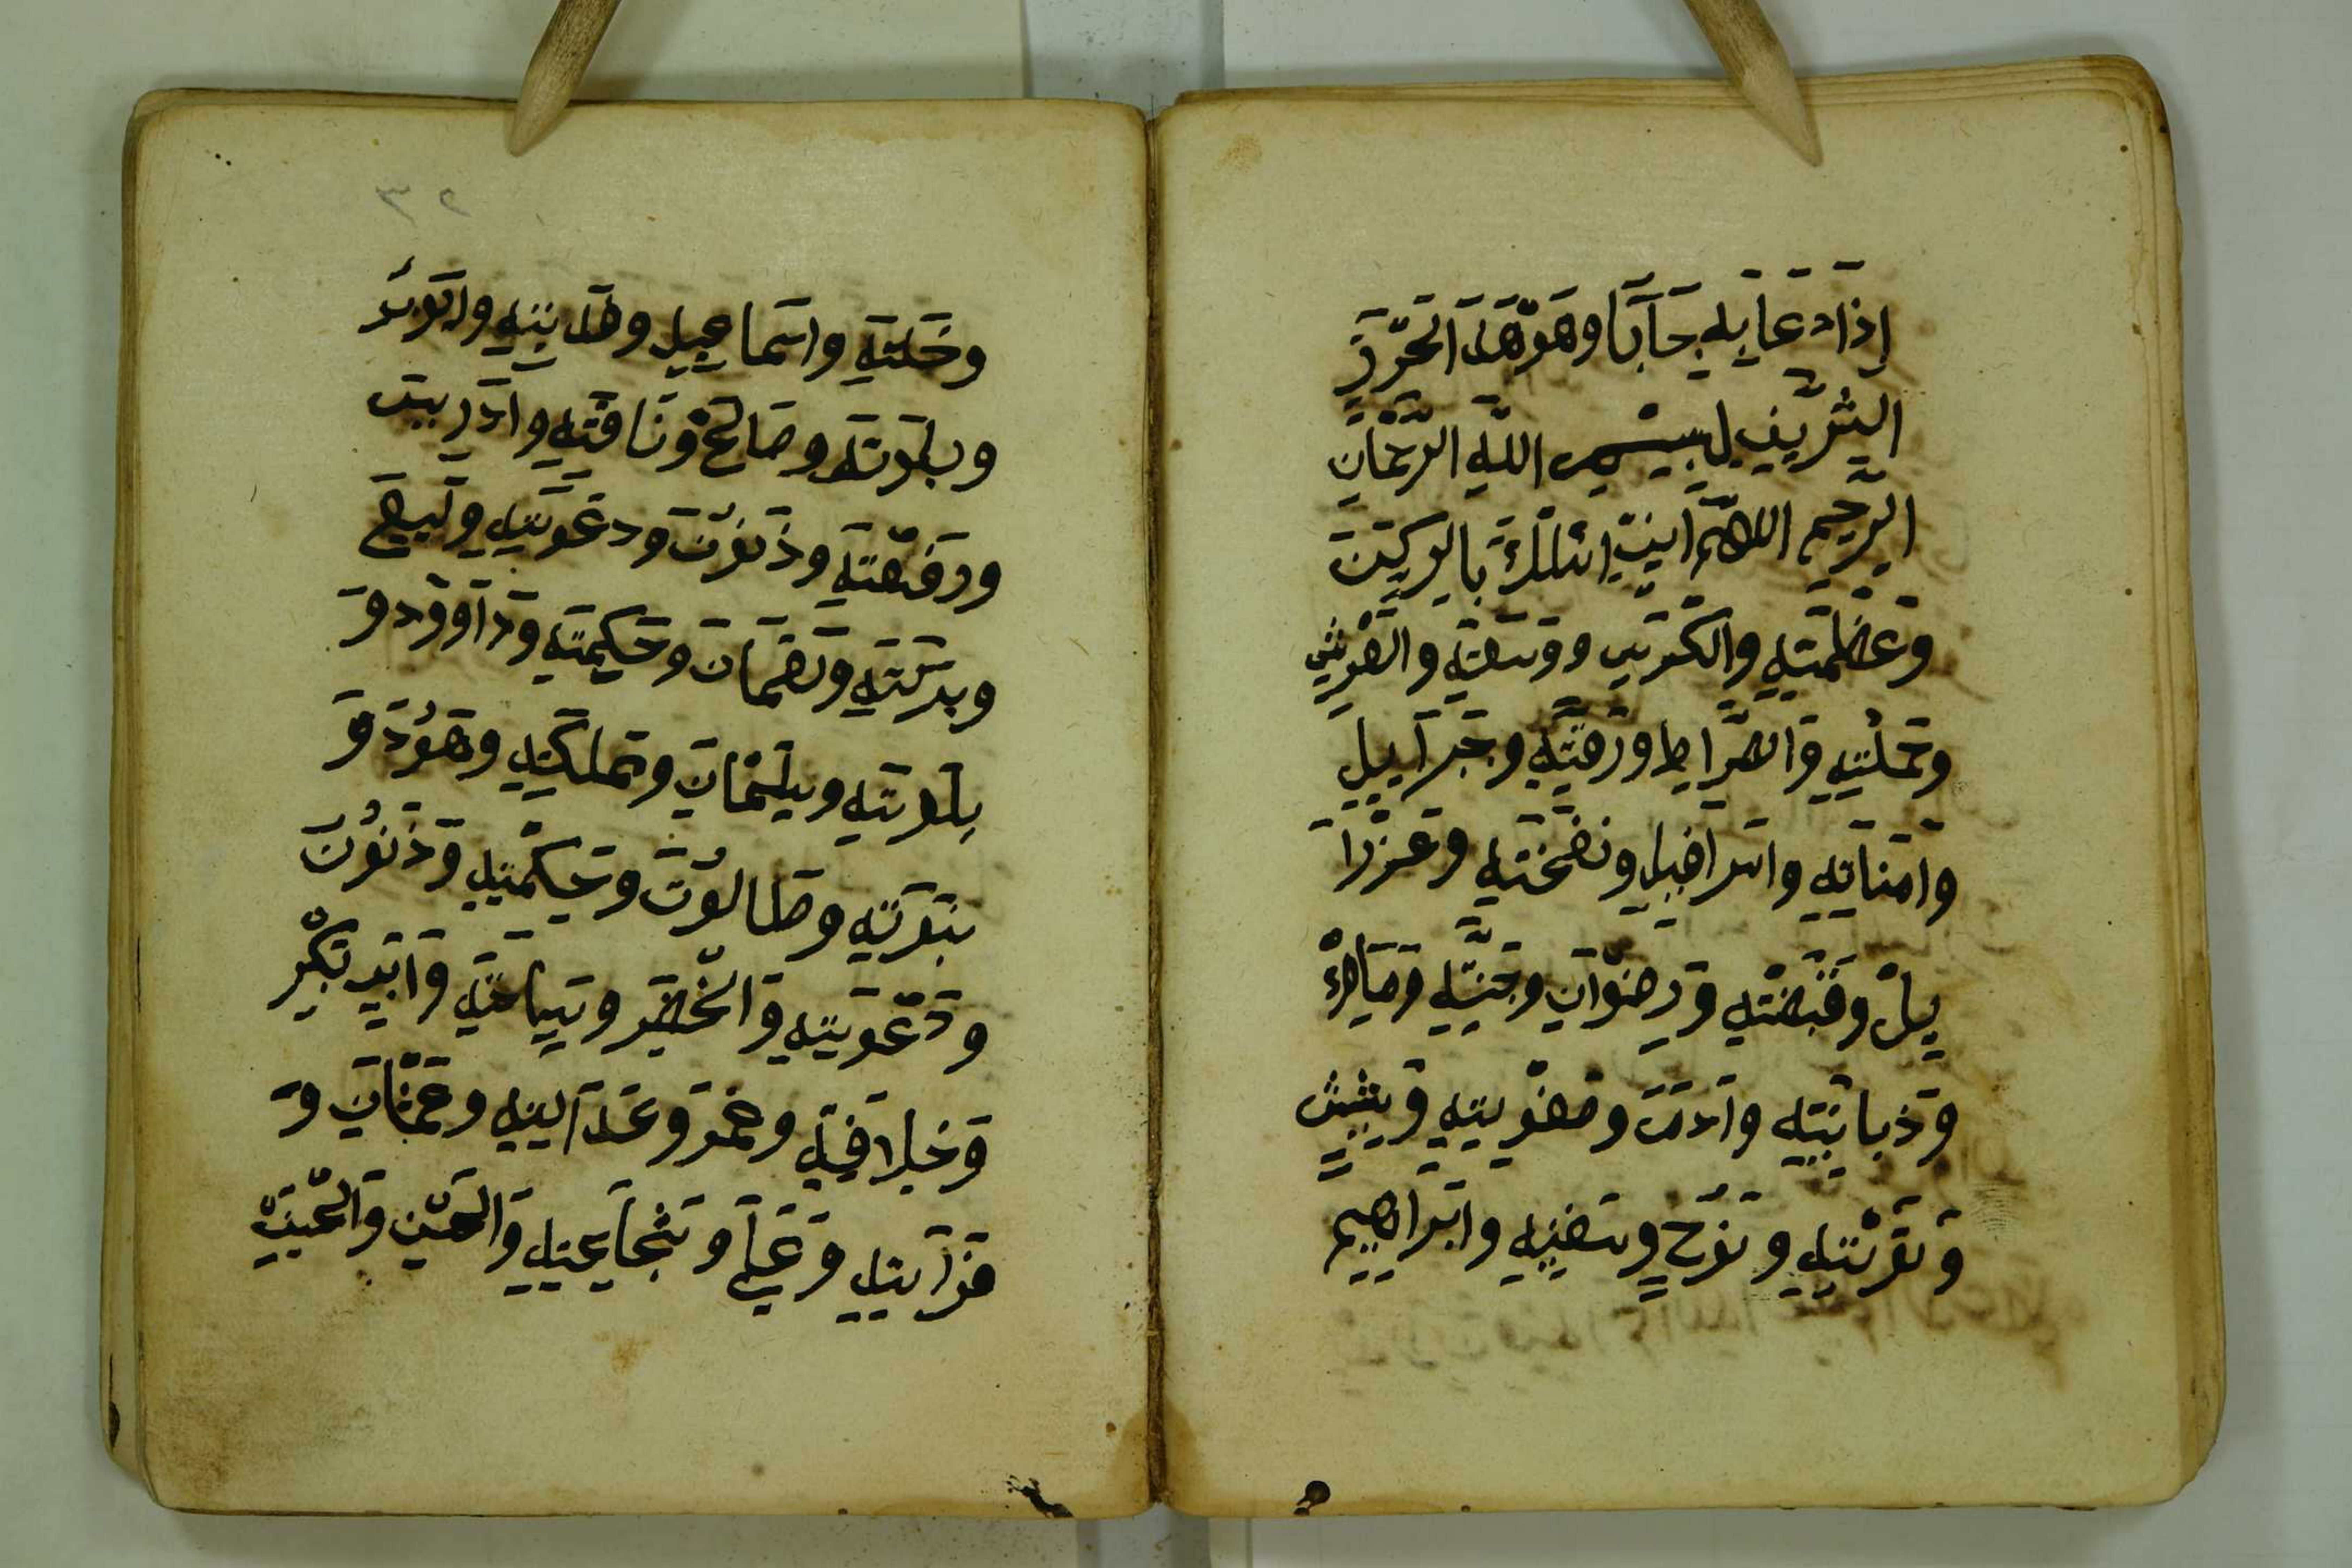 إذا دعا به جابا وهو هذا الحرز
الشريف لبسم الله الرحمان
الرحيم اللهم اني اسلك بالركن
وعظمته والكرسي ووسعته والعرش
وحملته والصراط ورقته وجبرآييل
وامناته واسرافيل ونفخته وعزرا
ييل وقبضته ورضوان وجنته ومالك
وذبانيته وآدم وصفويته وشيث
ونوح وسفينه وابراهيم
وخلته واسماعيل وايوب
وبلوته وصالح وناقته وادريس
ورفعته وذنون ودعوته
وبركته ولقمان وحكمته وداوود و
وسليمان ومملكته وهود و
وطالوت وحكمته وذنون
ودعوته والخضر وسياحته وابي بكر
وخلافته وعمر وعدالته وعثمان و
قرآيته وعلي وشجاعته والحسن والحسين
٣٢